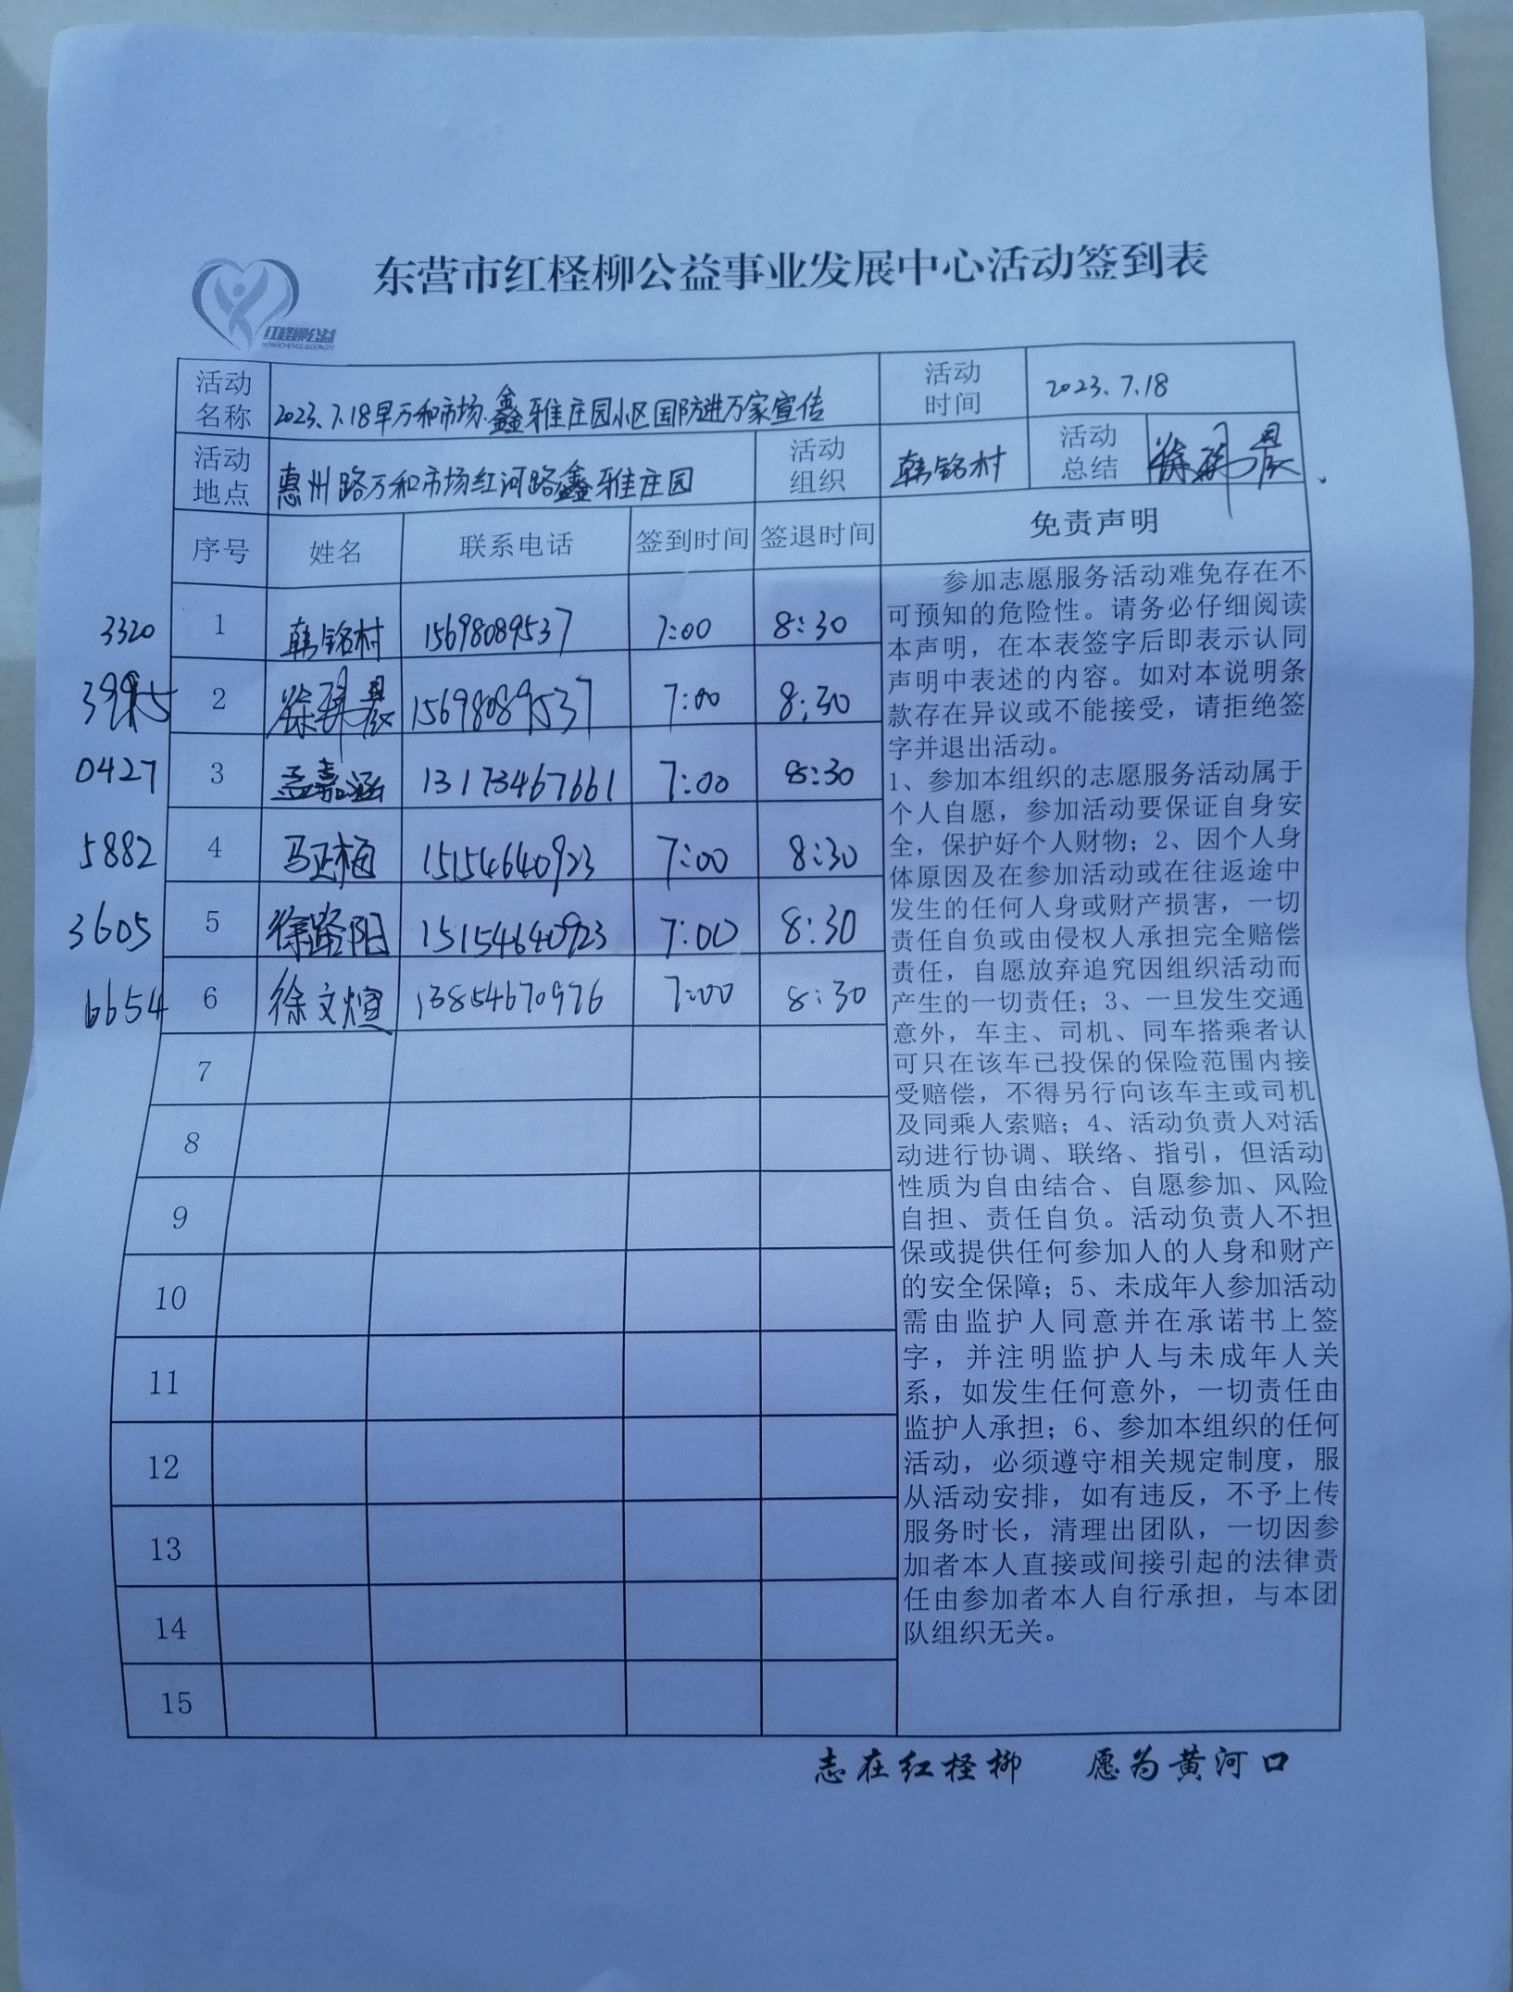 东营市红柽柳公益事业发展中心活动签到表
红柽柳公益
活动名称 2023.7.18早万和市场.鑫雅庄园小区国防进万家宣传 活动时间 2023.7.18
活动地点 惠州路万和市场红河路鑫雅庄园 活动组织 韩铭村 活动总结
序号 姓名 联系电话 签到时间 签退时间 免责声明
3320 1 韩铭村 15698089537 7:00 8:30
2 15698089537 7:00 8:30
0427 3 孟嘉涵 13173467661 7:00 8:30
5882 4 马正梅 15154640923 7:00 8:30
3605 5 徐路阳 15154640923 7:00 8:30
6654 6 徐文煊 13854670976 7:00 8:30
7
8
9
10
11
12
13
14
15
参加志愿服务活动难免存在不
可预知的危险性。请务必仔细阅读
本声明，在本表签字后即表示认同
声明中表述的内容。如对本说明条
款存在异议或不能接受，请拒绝签
字并退出活动。
1、参加本组织的志愿服务活动属于
个人自愿，参加活动要保证自身安
全，保护好个人财物；2、因个人身
体原因及在参加活动或在往返途中
发生的任何人身或财产损害，一切
责任自负或由侵权人承担完全赔偿
责任，自愿放弃追究因组织活动而
产生的一切责任；3、一旦发生交通
意外，车主、司机、同车搭乘者认
可只在该车已投保的保险范围内接
受赔偿，不得另行向该车主或司机
及同乘人索赔；4、活动负责人对活
动进行协调、联络、指引，但活动
性质为自由结合、自愿参加、风险
自担、责任自负。活动负责人不担
保或提供任何参加人的人身和财产
的安全保障；5、未成年人参加活动
需由监护人同意并在承诺书上签
字，并注明监护人与未成年人关
系，如发生任何意外，一切责任由
监护人承担；6、参加本组织的任何
活动，必须遵守相关规定制度，服
从活动安排，如有违反，不予上传
服务时长，清理出团队，一切因参
加者本人直接或间接引起的法律责
任由参加者本人自行承担，与本团
队组织无关。
志在红柽柳 愿为黄河口